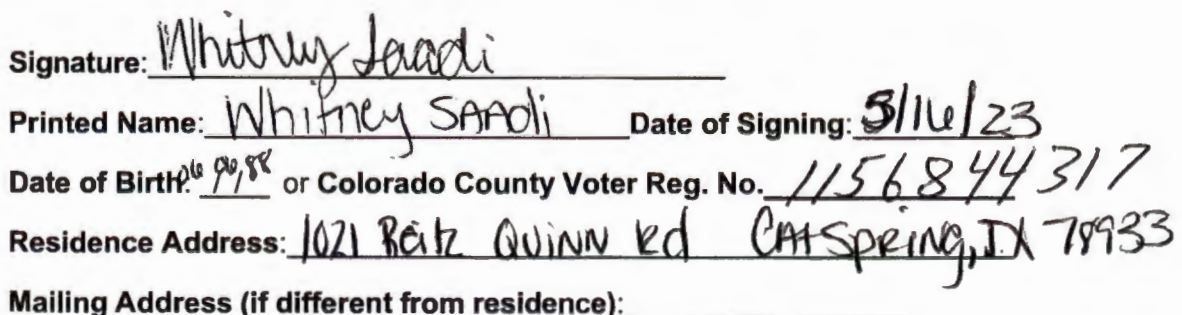 Signature: Whitney Saadi
Printed Name: Whitney SAAdi Date of Signing: 5/16/23
Date of Birth: or Colorado County Voter Reg. No. 1156844317
Residence Address: 1021 Reitz QUINN Rd CAt SpRiNG, TX 78933
Mailing Address (if different from residence):